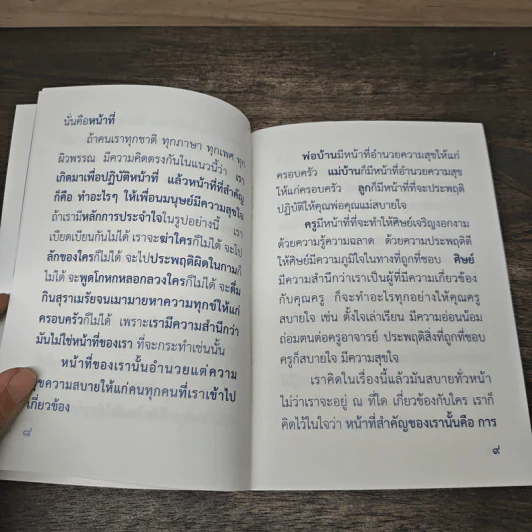 นั่นคือหน้าที่
ถ้าคนเราทุกชาติ ทุกภาษา ทุกเพศ ทุก
ผิวพรรณ มีความคิดตรงกันในแนวนี้ว่า เรา
เกิดมาเพื่อปฏิบัติหน้าที่ แล้วหน้าที่ที่สำคัญ
ก็คือ ทำอะไรๆ ให้เพื่อนมนุษย์มีความสุขใจ
ถ้าเรามีหลักการประจำใจในรูปอย่างนี้ เรา
เบียดเบียนกันไม่ได้ เราจะฆ่าใครก็ไม่ได้ จะไป
ลักของใครก็ไม่ได้ จะไปประพฤติผิดในกามก็
ไม่ได้ จะพูดโกหกหลอกลวงใครก็ไม่ได้ จะดื่ม
กินสุราเมรัยจนเมามายหาความทุกข์ให้แก่
ครอบครัวก็ไม่ได้ เพราะเรามีความสำนึกว่า
มันไม่ใช่หน้าที่ของเรา ที่จะกระทำเช่นนั้น
หน้าที่ของเรานั้นอำนวยแต่ความ
สุขความสบายให้แก่คนทุกคนที่เราเข้าไป
เกี่ยวข้อง
๘
พ่อบ้านมีหน้าที่อำนวยความสุขให้แก่
ครอบครัว แม่บ้านก็มีหน้าที่อำนวยความสุข
ให้แก่ครอบครัว ลูกก็มีหน้าที่ที่จะประพฤติ
ปฏิบัติให้คุณพ่อคุณแม่สบายใจ
ครูมีหน้าที่ที่จะทำให้ศิษย์เจริญงอกงาม
ด้วยความรู้ความฉลาด ด้วยความประพฤติดี
ให้ศิษย์มีความภูมิใจในทางที่ถูกที่ชอบ ศิษย์
มีความสำนึกว่าเราเป็นผู้ที่มีความเกี่ยวข้อง
กับคุณครู ก็จะทำอะไรทุกอย่างให้คุณครู
สบายใจ เช่น ตั้งใจเล่าเรียน มีความอ่อนน้อม
ถ่อมตนต่อครูอาจารย์ ประพฤติสิ่งที่ถูกที่ชอบ
ครูก็สบายใจ มีความสุขใจ
เราคิดในเรื่องนี้แล้วมันสบายทั่วหน้า
ไม่ว่าเราจะอยู่ ณ ที่ใด เกี่ยวข้องกับใคร เราก็
คิดไว้ในใจว่า หน้าที่สำคัญของเรานั้นคือ การ
๙